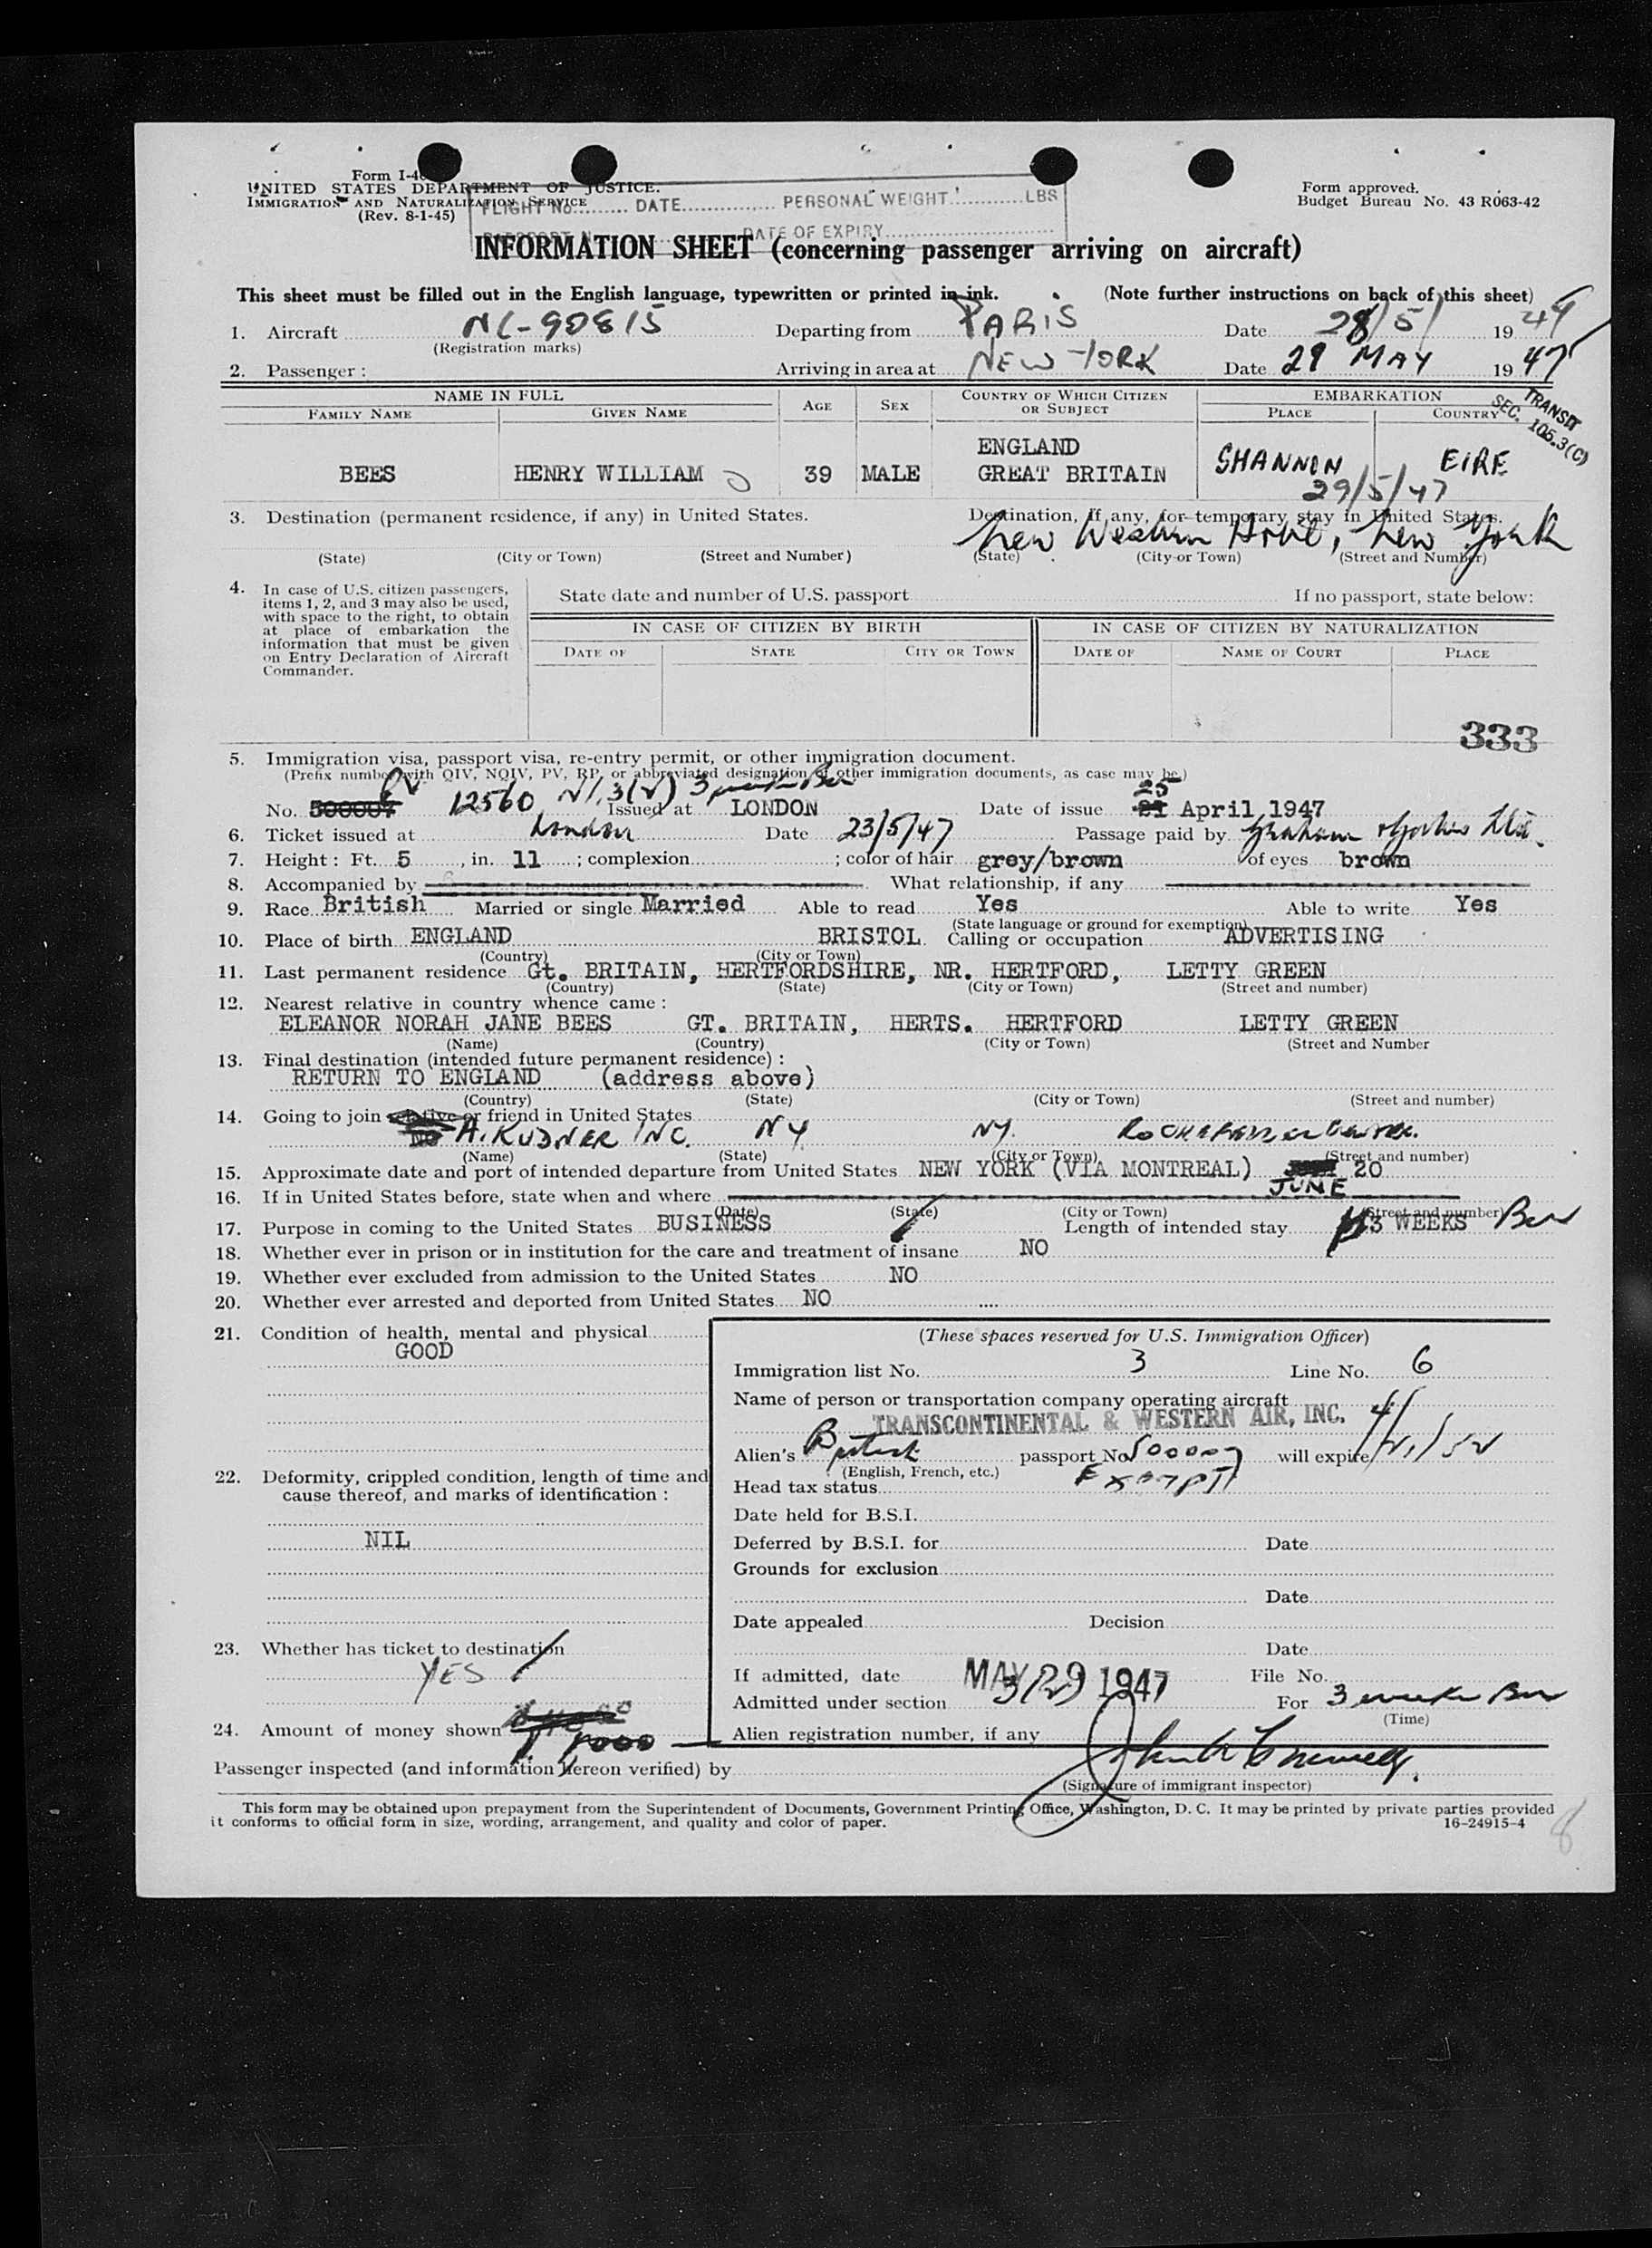 Form I-4
UNITED STATES DEPARTMENT OF JUSTICE.
IMMIGRATION AND NATURALIZATION SERVICE
(Rev. 8-1-45)
FLIGHT No.......... DATE............... PERSONAL WEIGHT............LBS
DATE OF EXPIRY
Form approved.
Budget Bureau No. 43 R063-42
INFORMATION SHEET (concerning passenger arriving on aircraft)
This sheet must be filled out in the English language, typewritten or printed in ink. (Note further instructions on back of this sheet)
1. Aircraft NC-90815 Departing from PARIS Date 28/5/ 19 47
(Registration marks)
2. Passenger : Arriving in area at NEW YORK Date 29 MAY 19 47
TRANSIT
SEC. 105.3(C)
NAME IN FULL AGE SEX COUNTRY OF WHICH CITIZEN OR SUBJECT EMBARKATION
FAMILY NAME GIVEN NAME PLACE COUNTRY
ENGLAND
BEES HENRY WILLIAM 39 MALE GREAT BRITAIN SHANNON EIRE
29/5/47
3. Destination (permanent residence, if any) in United States. Destination, if any, for temporary stay in United States.
New Weston Hotel, New York
(State) (City or Town) (Street and Number) (State) (City or Town) (Street and Number)
4. In case of U.S. citizen passengers, items 1, 2, and 3 may also be used, with space to the right, to obtain at place of embarkation the information that must be given on Entry Declaration of Aircraft Commander.
State date and number of U.S. passport If no passport, state below:
IN CASE OF CITIZEN BY BIRTH IN CASE OF CITIZEN BY NATURALIZATION
DATE OF STATE CITY OR TOWN DATE OF NAME OF COURT PLACE
333
5. Immigration visa, passport visa, re-entry permit, or other immigration document.
(Prefix number with QIV, NQIV, PV, RP, or abbreviated designation of other immigration documents, as case may be)
No. 500007 PV 12560 3(2) 3 weeks Issued at LONDON Date of issue 25 April 1947
6. Ticket issued at London Date 23/5/47 Passage paid by Graham
7. Height : Ft. 5, in. 11 ; complexion ; color of hair grey/brown of eyes brown
8. Accompanied by What relationship, if any
9. Race British Married or single Married Able to read Yes Able to write Yes
(State language or ground for exemption)
10. Place of birth ENGLAND BRISTOL Calling or occupation ADVERTISING
(Country) (City or Town)
11. Last permanent residence Gt. BRITAIN, HERTFORDSHIRE, NR. HERTFORD, LETTY GREEN
(Country) (State) (City or Town) (Street and number)
12. Nearest relative in country whence came :
ELEANOR NORAH JANE BEES GT. BRITAIN, HERTS. HERTFORD LETTY GREEN
(Name) (Country) (City or Town) (Street and Number
13. Final destination (intended future permanent residence) :
RETURN TO ENGLAND (address above)
(Country) (State) (City or Town) (Street and number)
14. Going to join relative or friend in United States
A. KUDNER INC. NY NY. 
(Name) (State) (City or Town) (Street and number)
15. Approximate date and port of intended departure from United States NEW YORK (VIA MONTREAL) 20
JUNE
16. If in United States before, state when and where
(Date) (State) (City or Town) (Street and number)
17. Purpose in coming to the United States BUSINESS Length of intended stay 3 WEEKS
18. Whether ever in prison or in institution for the care and treatment of insane NO
19. Whether ever excluded from admission to the United States NO
20. Whether ever arrested and deported from United States NO
21. Condition of health, mental and physical
GOOD
22. Deformity, crippled condition, length of time and cause thereof, and marks of identification :
NIL
23. Whether has ticket to destination
YES
24. Amount of money shown 1000
(These spaces reserved for U.S. Immigration Officer)
Immigration list No. 3 Line No. 6
Name of person or transportation company operating aircraft
TRANSCONTINENTAL & WESTERN AIR, INC.
Alien's British passport No. 500007 will expire 4/21/52
(English, French, etc.)
Head tax status EXEMPT
Date held for B.S.I.
Deferred by B.S.I. for Date
Grounds for exclusion
Date
Date appealed Decision
Date
If admitted, date MAY 29 1947 File No.
Admitted under section 3(2) For 3 weeks
(Time)
Alien registration number, if any
Passenger inspected (and information hereon verified) by
(Signature of immigrant inspector)
This form may be obtained upon prepayment from the Superintendent of Documents, Government Printing Office, Washington, D. C. It may be printed by private parties provided
it conforms to official form in size, wording, arrangement, and quality and color of paper. 16-24915-4
8